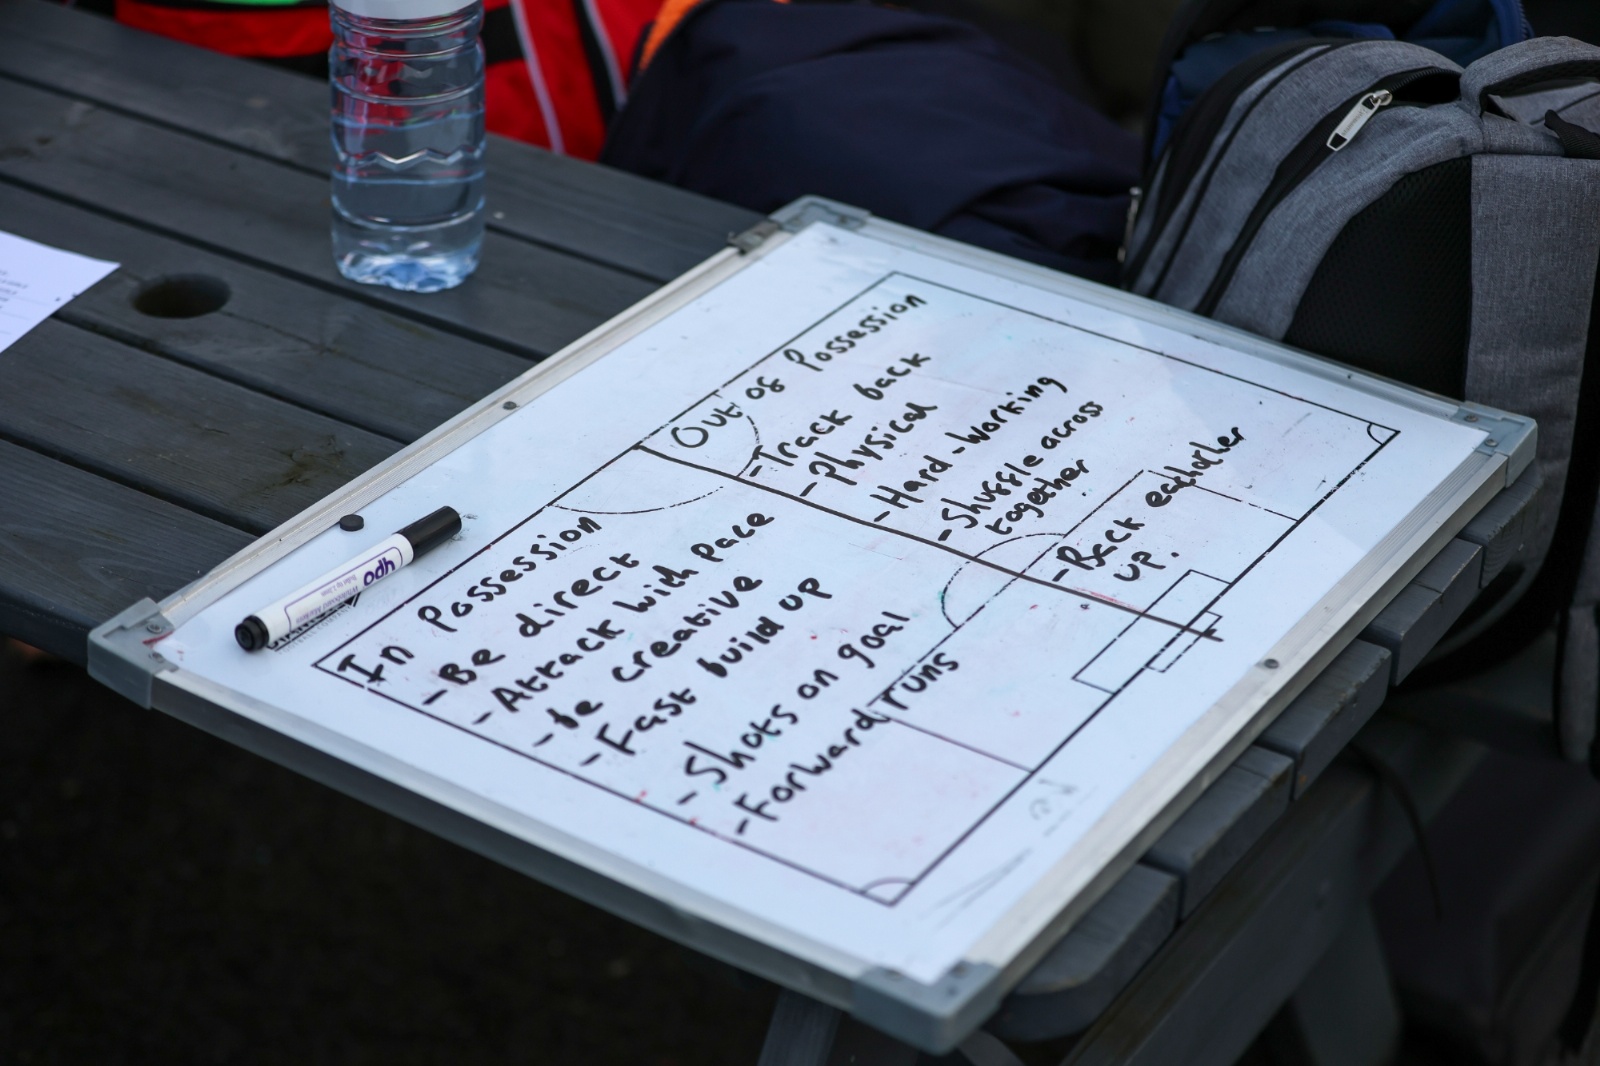 In Possession
- Be direct
- Attack with Pace
- be creative
- Fast build up
- Shots on goal
- Forward runs
Out of Possession
- Track back
- Physical
- Hard-working
- Shuffle across
together
- Back eachother
up.
ypo
Whiteboard Marker